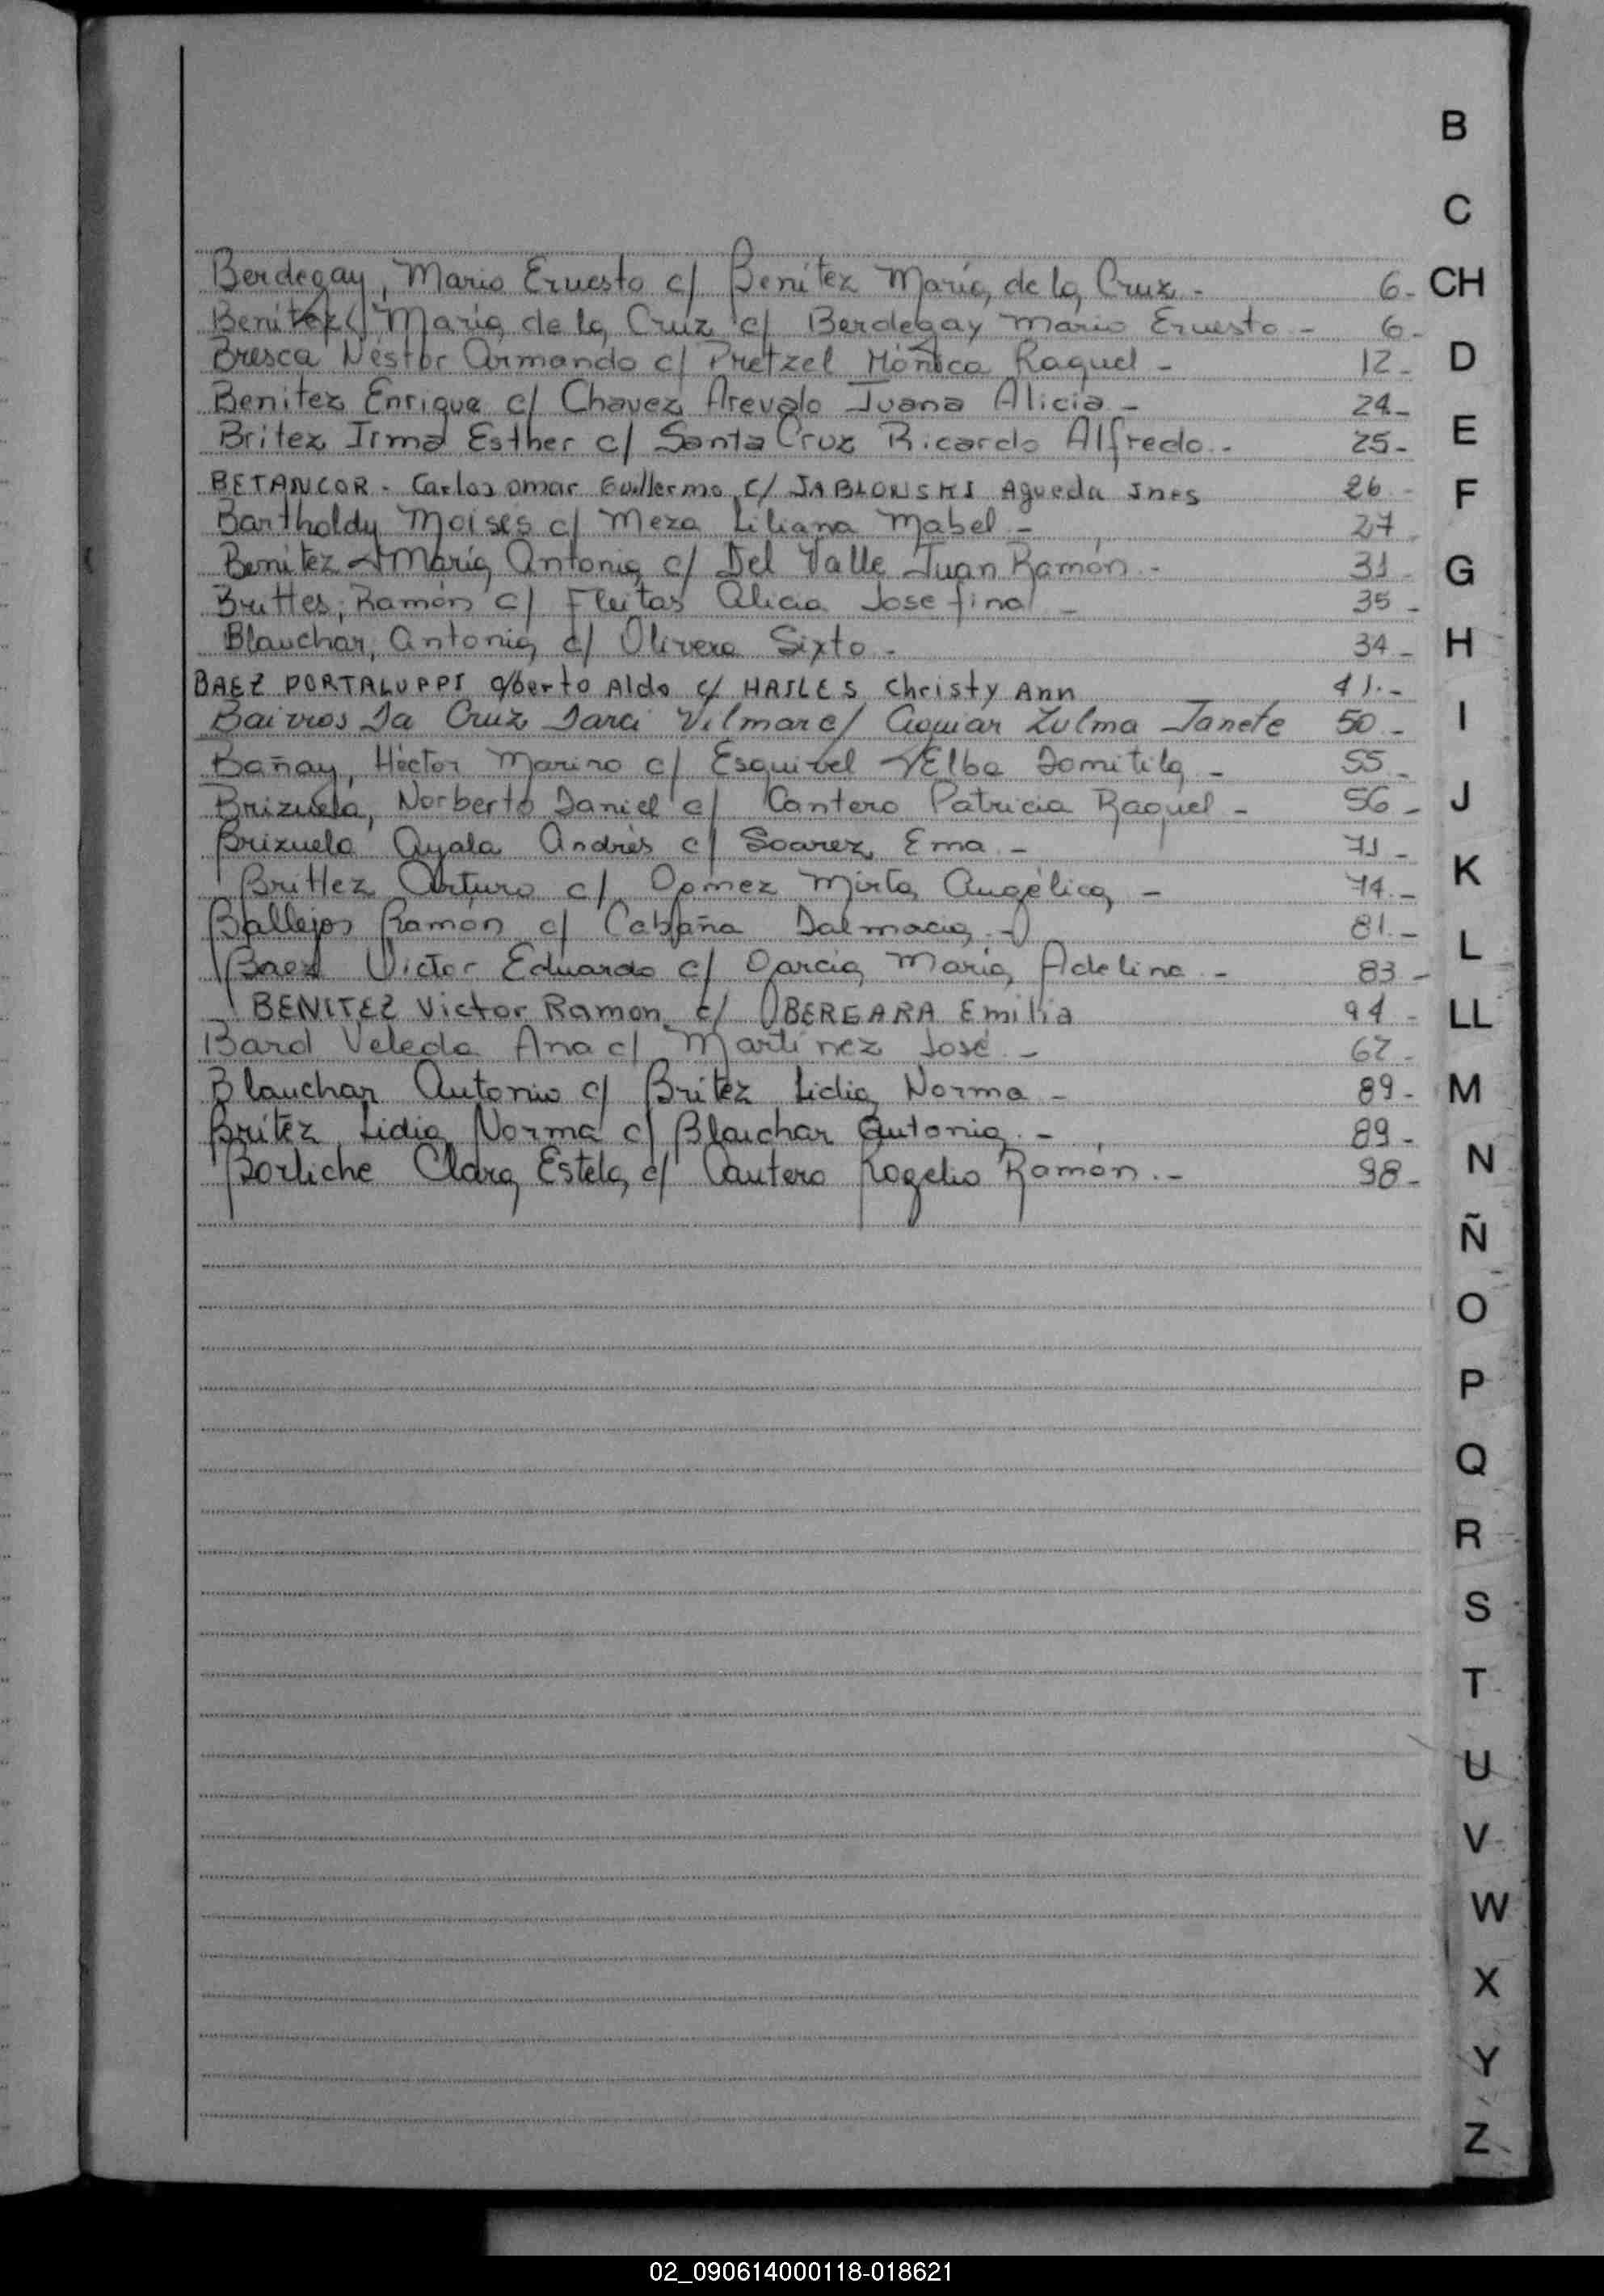 B
C
Berdegay, Mario Ernesto c/ Benítez María de la Cruz - 6- CH
Benitez María de la Cruz c/ Berdegay Mario Ernesto - 6-
Bresca Néstor Armando c/ Pretzel Mónica Raquel - 12- D
Benitez Enrique c/ Chavez Arevalo Juana Alicia - 24-
Britez Irma Esther c/ Santa Cruz Ricardo Alfredo - 25- E
BETANCOR - Carlos omar Guillermo c/ JABLONSKI Agueda Ines 26- F
Bartholdy Moisés c/ Meza Liliana Mabel - 27
Benitez María Antonia c/ Del Valle Juan Ramón - 31- G
Brittes, Ramón c/ Fleitas Alicia Josefina - 35-
Blauchar, Antonia c/ Olivera Sixto - 34- H
BAEZ PORTALUPPI Alberto Aldo c/ HAILES Christy Ann 41.-
Bairros Da Cruz Darci Vilmar c/ Aguiar Zulma Janete 50- I
Bañay, Héctor Marino c/ Esquivel Elba Domitila - 55-
Brizuela, Norberto Daniel c/ Cantero Patricia Raquel - 56- J
Brizuela Ayala Andrés c/ Soarez, Ema - 71-
Brittez Arturo c/ Gomez Mirta Angélica - 74.- K
Ballejos Ramón c/ Cabaña Dalmacia - 81.- L
Baez Victor Eduardo c/ Garcia María Adelina - 83-
BENITEZ Victor Ramon c/ BERGARA Emilia 94- LL
Bard Veleda Ana c/ Martinez José - 62-
Blauchar Antonio c/ Britez Lidia Norma - 89- M
Britez, Lidia Norma c/ Blauchar Antonio - 89- N
Borliche Clara Estela c/ Cantero Rogelio Ramón - 98-
Ñ
O
P
Q
R
S
T
U
V
W
X
Y
Z
02_090614000118-018621